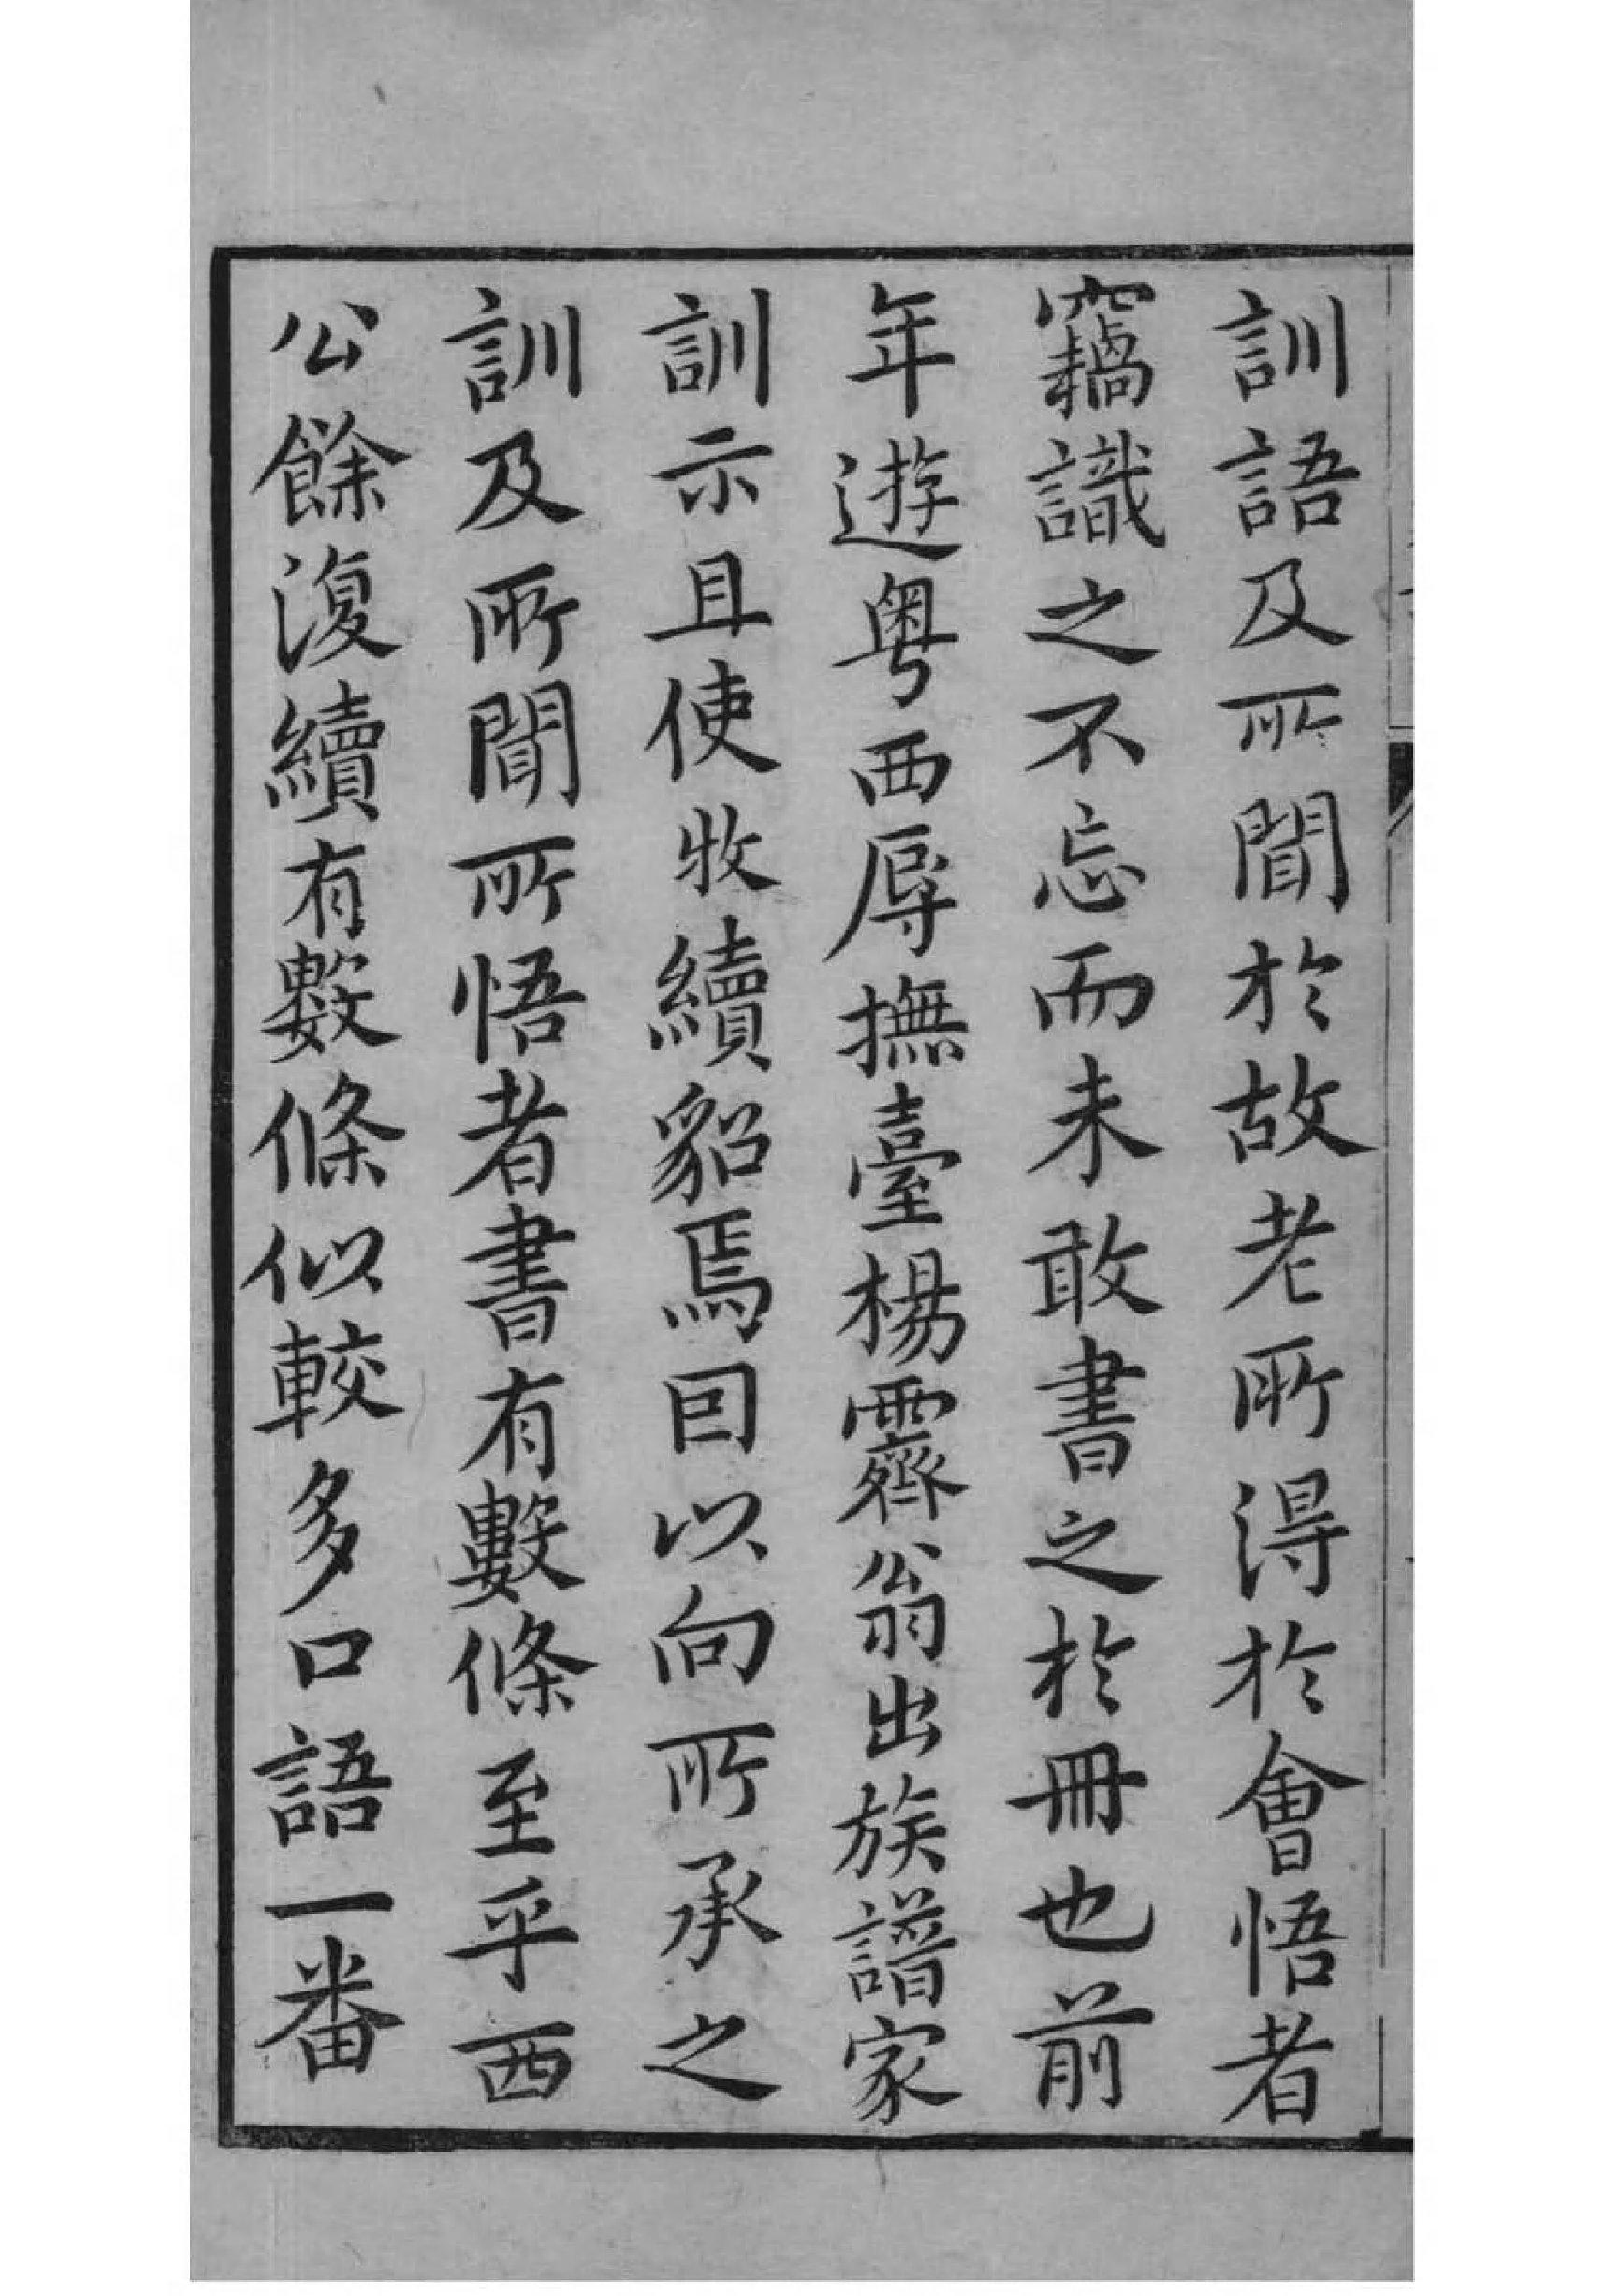 訓語及所聞於故老所得於會悟者
竊識之不忘而未敢書之於冊也前
年遊粤西辱撫臺楊霽翁出族譜家
訓示且使收續貂焉因以向所承之
訓及所聞所悟者書有數條至乎西
公餘復續有數條似較多口語一番